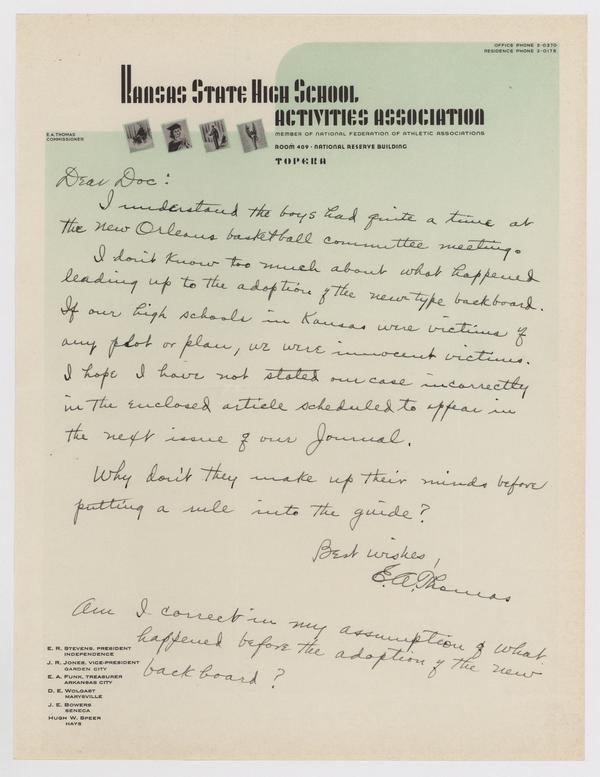 OFFICE PHONE 2-0370
RESIDENCE PHONE 2-0175
KANSAS STATE HIGH SCHOOL
ACTIVITIES ASSOCIATION
E.A. THOMAS
COMMISSIONER
MEMBER OF NATIONAL FEDERATION OF ATHLETIC ASSOCIATIONS
ROOM 409 · NATIONAL RESERVE BUILDING
TOPEKA
Dear Doc:
I understand the boys had quite a time at
the New Orleans basketball committee meeting.
I don't know too much about what happened
leading up to the adoption of the new type backboard.
If our high schools in Kansas were victims of
any plot or plan, we were innocent victims.
I hope I have not stated our case incorrectly
in the enclosed article scheduled to appear in
the next issue of our Journal.
Why don't they make up their minds before
putting a rule into the guide?
Best wishes,
E.A. Thomas
Am I correct in my assumption of what
happened before the adoption of the new
backboard?
E. R. STEVENS, PRESIDENT
INDEPENDENCE
J. R. JONES, VICE-PRESIDENT
GARDEN CITY
E. A. FUNK, TREASURER
ARKANSAS CITY
D. E. WOLGAST
MARYSVILLE
J. E. BOWERS
SENECA
HUGH W. SPEER
HAYS